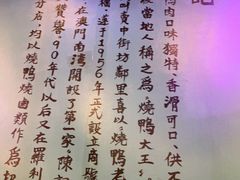 記
肉口味獨特、香滑可口、供不
被當地人稱之為燒鴨大王
叫賣中街坊鄰里喜以燒鴨老
檔，遂于1956年正式設立商
在澳門南灣開設了第一家陳
贊譽。90年代以后又在羅利
分店，均以燒鴨燒鹵類作爲